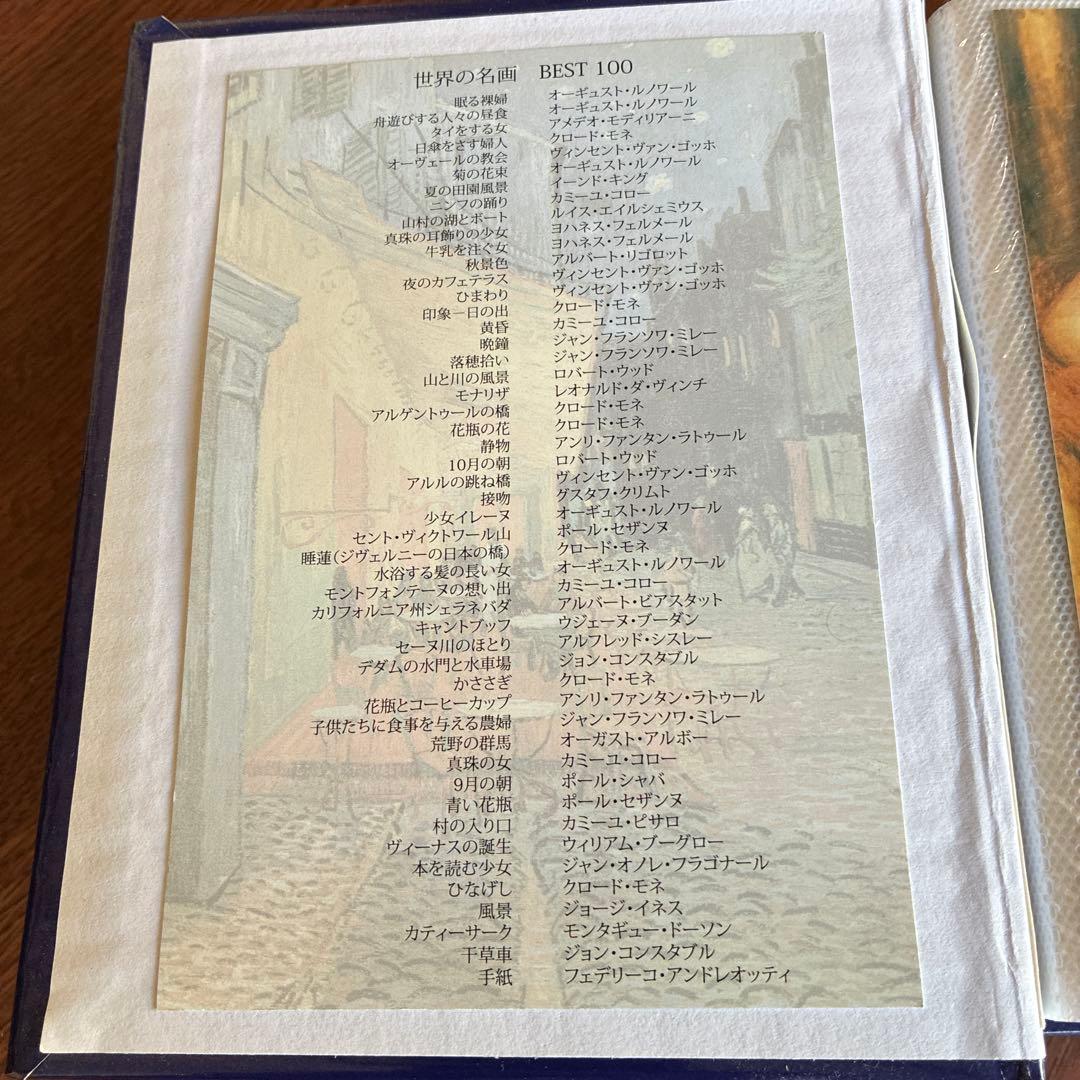 世界の名画 BEST 100
眠る裸婦 オーギュスト・ルノワール
舟遊びする人々の昼食 オーギュスト・ルノワール
タイをする女 アメデオ・モディリアーニ
日傘をさす婦人 クロード・モネ
オーヴェールの教会 ヴィンセント・ヴァン・ゴッホ
菊の花束 オーギュスト・ルノワール
夏の田園風景 イーンド・キング
ニンフの踊り カミーユ・コロー
山村の湖とボート ルイス・エイルシェミウス
真珠の耳飾りの少女 ヨハネス・フェルメール
牛乳を注ぐ女 ヨハネス・フェルメール
秋景色 アルバート・リゴロット
夜のカフェテラス ヴィンセント・ヴァン・ゴッホ
ひまわり ヴィンセント・ヴァン・ゴッホ
印象―日の出 クロード・モネ
黄昏 カミーユ・コロー
晩鐘 ジャン・フランソワ・ミレー
落穂拾い ジャン・フランソワ・ミレー
山と川の風景 ロバート・ウッド
モナリザ レオナルド・ダ・ヴィンチ
アルゲントゥールの橋 クロード・モネ
花瓶の花 クロード・モネ
静物 アンリ・ファンタン・ラトゥール
10月の朝 ロバート・ウッド
アルルの跳ね橋 ヴィンセント・ヴァン・ゴッホ
接吻 グスタフ・クリムト
少女イレーヌ オーギュスト・ルノワール
セント・ヴィクトワール山 ポール・セザンヌ
睡蓮(ジヴェルニーの日本の橋) クロード・モネ
水浴する髪の長い女 オーギュスト・ルノワール
モントフォンテーヌの想い出 カミーユ・コロー
カリフォルニア州シェラネバダ アルバート・ビアスタット
キャントブッフ ウジェーヌ・ブーダン
セーヌ川のほとり アルフレッド・シスレー
デダムの水門と水車場 ジョン・コンスタブル
かささぎ クロード・モネ
花瓶とコーヒーカップ アンリ・ファンタン・ラトゥール
子供たちに食事を与える農婦 ジャン・フランソワ・ミレー
荒野の群馬 オーガスト・アルボー
真珠の女 カミーユ・コロー
9月の朝 ポール・シャバ
青い花瓶 ポール・セザンヌ
村の入り口 カミーユ・ピサロ
ヴィーナスの誕生 ウィリアム・ブーグロー
本を読む少女 ジャン・オノレ・フラゴナール
ひなげし クロード・モネ
風景 ジョージ・イネス
カティーサーク モンタギュー・ドーソン
干草車 ジョン・コンスタブル
手紙 フェデリーコ・アンドレオッティ